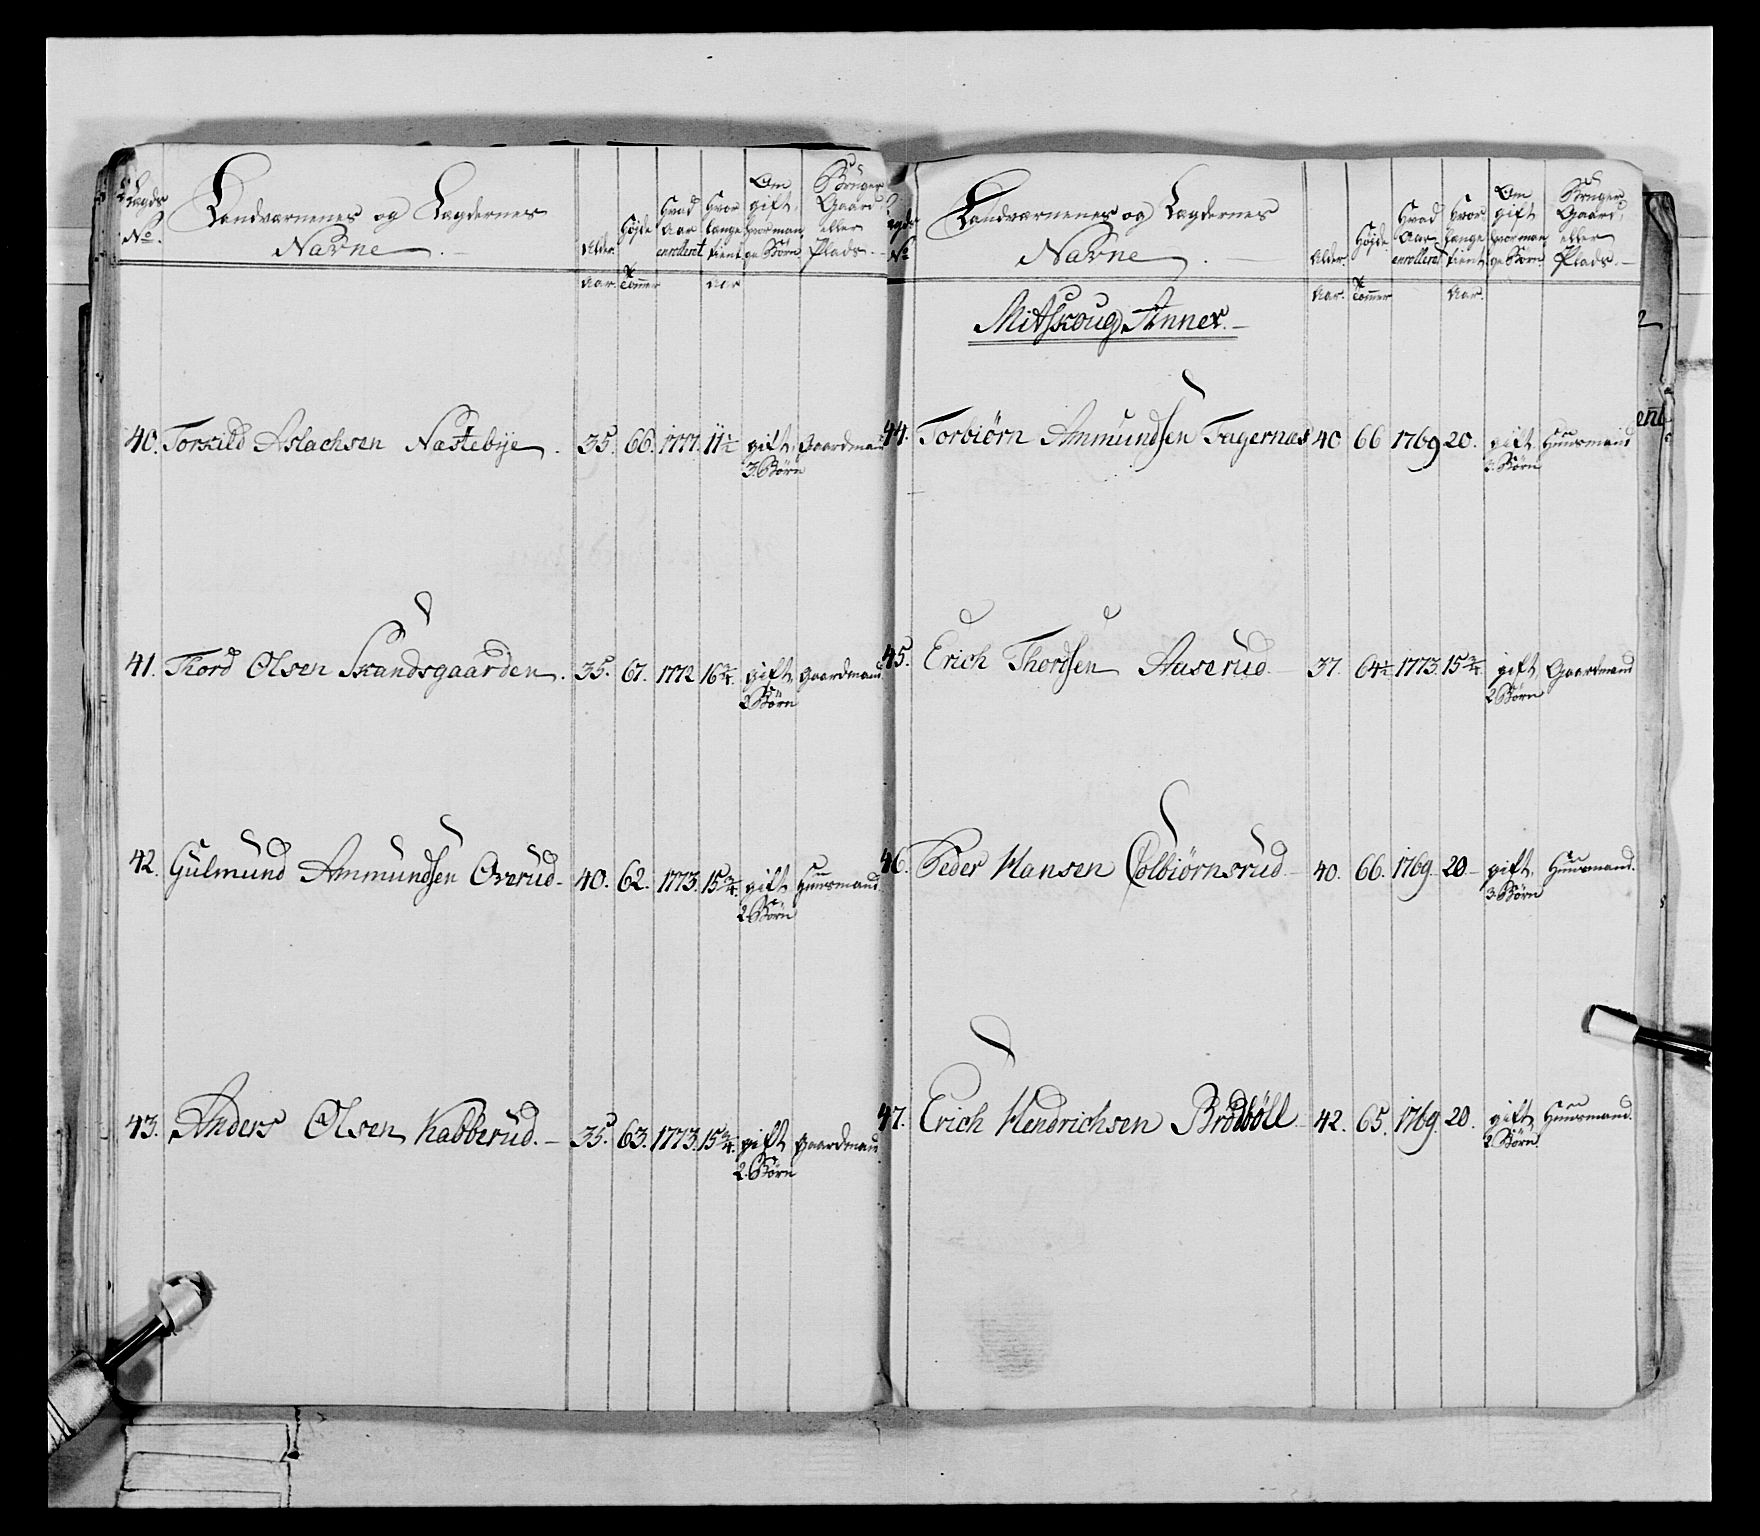 Lægds No. | Landværnenes og Lægdernes Navne | Alder. Aar. | Højde Tommer | Hvad Aar enrolleret | Hvor længe tient Aar | Om gift, hvor mange Børn | Bruger Gaard eller Plads.
40. Torkild Aslachsen Nastebÿe. 35. 66. 1777. 11½ gift, Gaardmand
3. Børn
41. Thord Olsen Skandsgaarden. 35. 67. 1772 16¾ gift, gaardmand.
2 Børn
42. Gulmund Ammundsen Overud. 40. 62. 1773. 15¾ gift Huusmand.
2 Børn
43. Anders Olsen Kabberud. 35. 63. 1773. 15¾ gift gaardmand
2. Børn
Lægds No | Landværnenes og Lægdernes Navne | Alder. Aar. | Højde Tommer | Hvad Aar enrolleret | Hvor længe tient Aar. | Om gift hvor mange Børn | Bruger Gaard, eller Plads.
Mitskoug Annex.
44. Torbiørn Ammundsen Fagernas 40 66 1769 20. gift Huusmand
Børn
45. Erich Thordsen Auserud. 37. 64½ 1773. 15¾ gift Gaardmand
2 Børn
46. Peder Hansen Colbiørnsrud 40. 66. 1769. 20 gift, Huusmand.
3. Børn
47. Erich Hendrichsen Brødbøll 42. 65. 1769. 20. gift Huusmand.
2. Børn